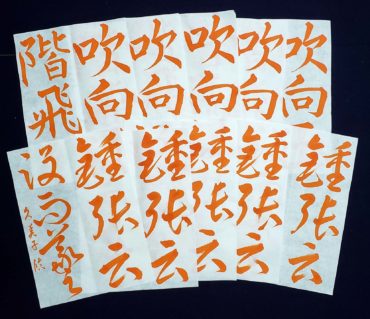 吹向
吹向
吹向
吹向
吹向
階飛
鍾張云
鍾張云
鍾張云
鍾張云
鍾張云
没而羲
久美子臨